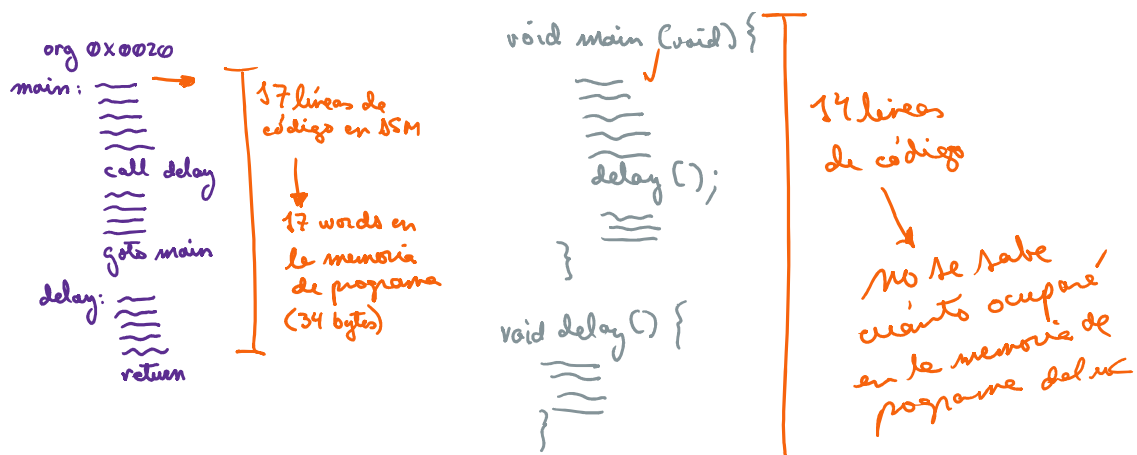 org 0x0020
main:
call delay
goto main
delay:
return
17 líneas de
código en ASM
17 words en
la memoria
de programa
(34 bytes)
void main (void) {
delay();
}
void delay() {
}
14 líneas
de código
No se sabe
cuánto ocuparé
en la memoria de
programa del uC